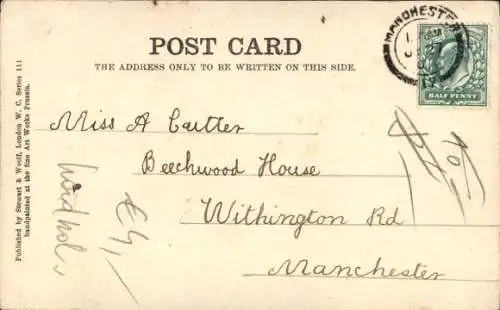 POST CARD
THE ADDRESS ONLY TO BE WRITTEN ON THIS SIDE.
MANCHESTER
HALF PENNY
Miss A Cutter
Beechwood House
Withington Rd
Manchester
Published by Stewart & Woolf, London W. C. Series 111
handpainted at the fine Art Works Frensis.